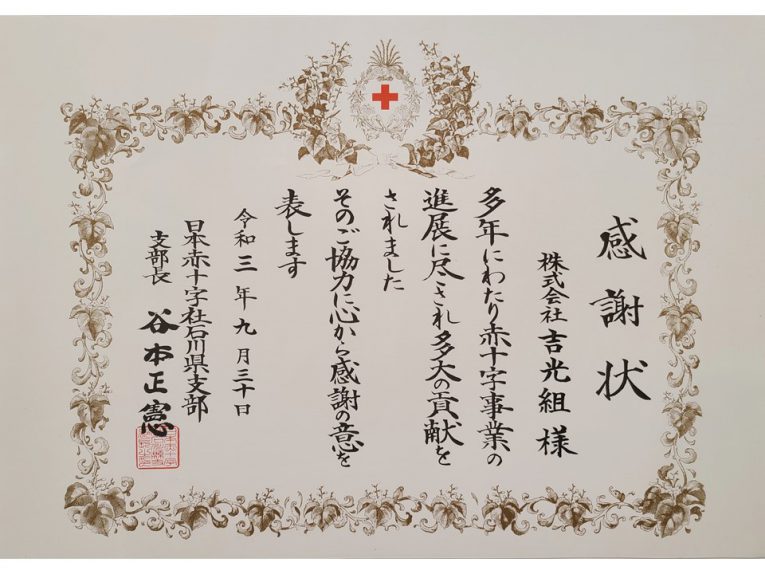 感謝状
株式会社 吉光組 様
多年にわたり赤十字事業の
進展に尽され多大の貢献を
されました
そのご協力に心から感謝の意を
表します
令和三年九月三十日
日本赤十字社石川県支部
支部長 谷本正憲